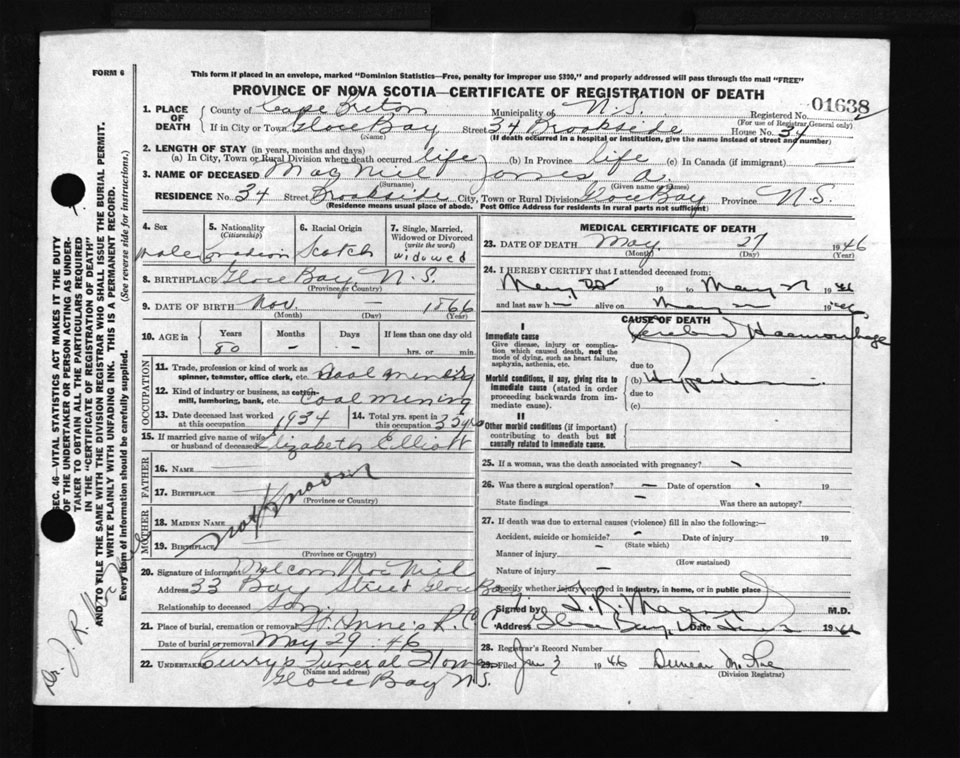 FORM 6
This form if placed in an envelope, marked "Dominion Statistics—Free, penalty for improper use $300," and properly addressed will pass through the mail "FREE"
PROVINCE OF NOVA SCOTIA—CERTIFICATE OF REGISTRATION OF DEATH
1. PLACE OF DEATH
County of Cape Breton Municipality of N.S. Registered No. 01638
(For use of Registrar General only)
If in City or Town Glace Bay Street 34 Brookside House No. 34
(Name) (If death occurred in a hospital or institution, give the name instead of street and number)
2. LENGTH OF STAY (in years, months and days)
(a) In City, Town or Rural Division where death occurred life (b) In Province life (c) In Canada (if immigrant) —
3. NAME OF DECEASED MacNeil James A.
(Surname) (Given name or names)
RESIDENCE No. 34 Street Brookside City, Town or Rural Division Glace Bay Province N.S.
(Residence means usual place of abode. Post Office Address for residents in rural parts not sufficient)
4. Sex
male
5. Nationality (Citizenship)
6. Racial Origin
Scotch
7. Single, Married, Widowed or Divorced (write the word)
widowed
8. BIRTHPLACE Glace Bay N.S.
(Province or Country)
9. DATE OF BIRTH Nov. — 1866
(Month) (Day) (Year)
10. AGE in Years Months Days If less than one day old
80 - - hrs. or min.
OCCUPATION
11. Trade, profession or kind of work as spinner, teamster, office clerk, etc. Coal mining
12. Kind of industry or business, as cotton-mill, lumbering, bank, etc. Coal mining
13. Date deceased last worked at this occupation 1934
14. Total yrs. spent in this occupation 35 yrs
15. If married give name of wife or husband of deceased Elizabeth Elliott
FATHER
16. Name
17. Birthplace
(Province or Country)
not known
MOTHER
18. Maiden Name
19. Birthplace
(Province or Country)
20. Signature of informant Malcom MacNeil
Address 33 Bay Street Glace Bay
Relationship to deceased Son
21. Place of burial, cremation or removal St Anne's R.C.
Date of burial or removal May 29 '46
22. Undertaker Curry's Funeral Home
(Name and address)
Glace Bay N.S.
MEDICAL CERTIFICATE OF DEATH
23. DATE OF DEATH May 27 1946
(Month) (Day) (Year)
24. I HEREBY CERTIFY that I attended deceased from:
May 19 to May 27 1946
and last saw h alive on May 1946
CAUSE OF DEATH
I
Immediate cause
Give disease, injury or complication which caused death, not the mode of dying, such as heart failure, asphyxia, asthenia, etc.
Haemorrhage
due to
Morbid conditions, if any, giving rise to immediate cause (stated in order proceeding backwards from immediate cause).
(b)
due to
(c)
II
Other morbid conditions (if important) contributing to death but not causally related to immediate cause.
25. If a woman, was the death associated with pregnancy?
26. Was there a surgical operation? — Date of operation 19
State findings — Was there an autopsy?
27. If death was due to external causes (violence) fill in also the following:—
Accident, suicide or homicide? Date of injury 19
(State which)
Manner of injury —
(How sustained)
Nature of injury —
Specify whether injury occurred in industry, in home, or in public place
Signed by M.D.
Address Glace Bay Date 1946
28. Registrar's Record Number
29. Filed 1946 Duncan
(Division Registrar)
SEC. 46—VITAL STATISTICS ACT MAKES IT THE DUTY OF THE UNDERTAKER OR PERSON ACTING AS UNDERTAKER TO OBTAIN ALL THE PARTICULARS REQUIRED IN THE "CERTIFICATE OF REGISTRATION OF DEATH" AND TO FILE THE SAME WITH THE DIVISION REGISTRAR WHO SHALL ISSUE THE BURIAL PERMIT.
WRITE PLAINLY WITH UNFADING INK. THIS IS A PERMANENT RECORD.
Every item of information should be carefully supplied. (See reverse side for instructions.)
Dr. J. R.